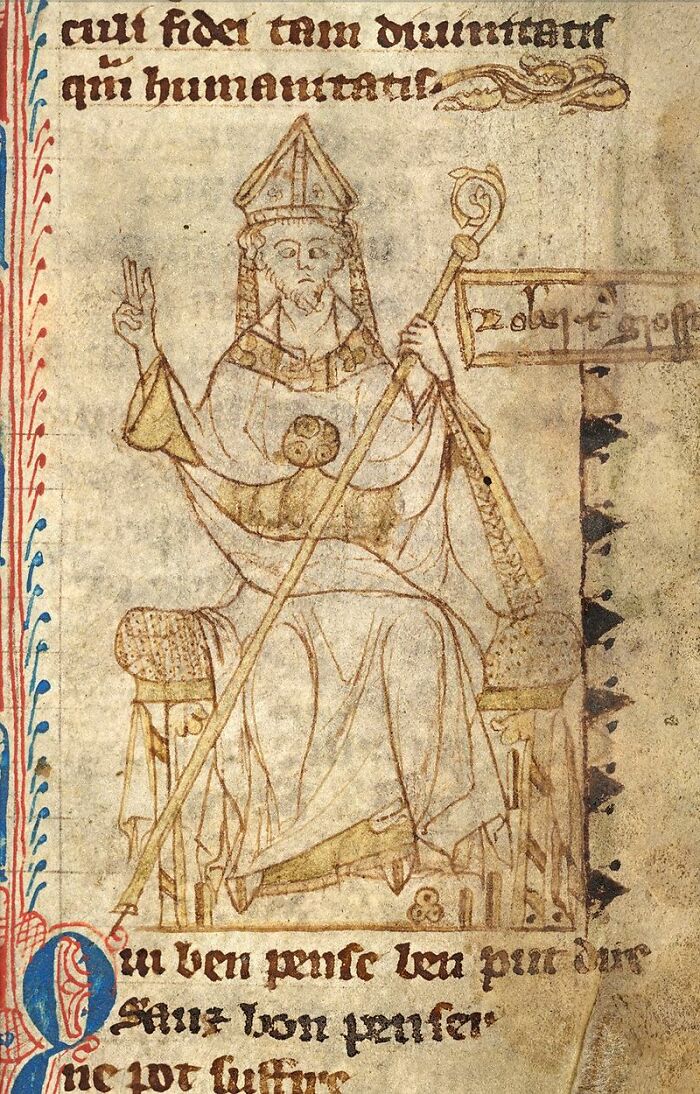 culi fidei tam diuinitatis
qm̄ humanitatis.
groſſ
Qui ben pense ben put dire
Sanz bon penser
ne pot suffire